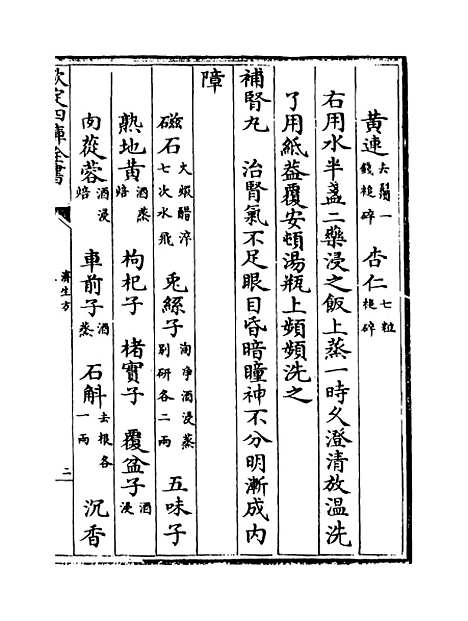 黄連去鬚一錢槌碎 杏仁七粒槌碎
右用水半盞二藥浸之飯上蒸一時久澄清放温洗
了用紙葢覆安頓湯瓶上頻頻洗之
補腎丸 治腎氣不足眼目昏暗瞳神不分明漸成内
障
磁石火煅醋淬七次水飛 兎絲子淘净酒浸蒸别研各二兩 五味子
熟地黄酒蒸焙 枸杞子 楮實子 覆盆子酒浸
肉蓯蓉酒浸焙 車前子酒蒸 石斛去根各一兩 沉香
欽定四庫全書
濟生方
二